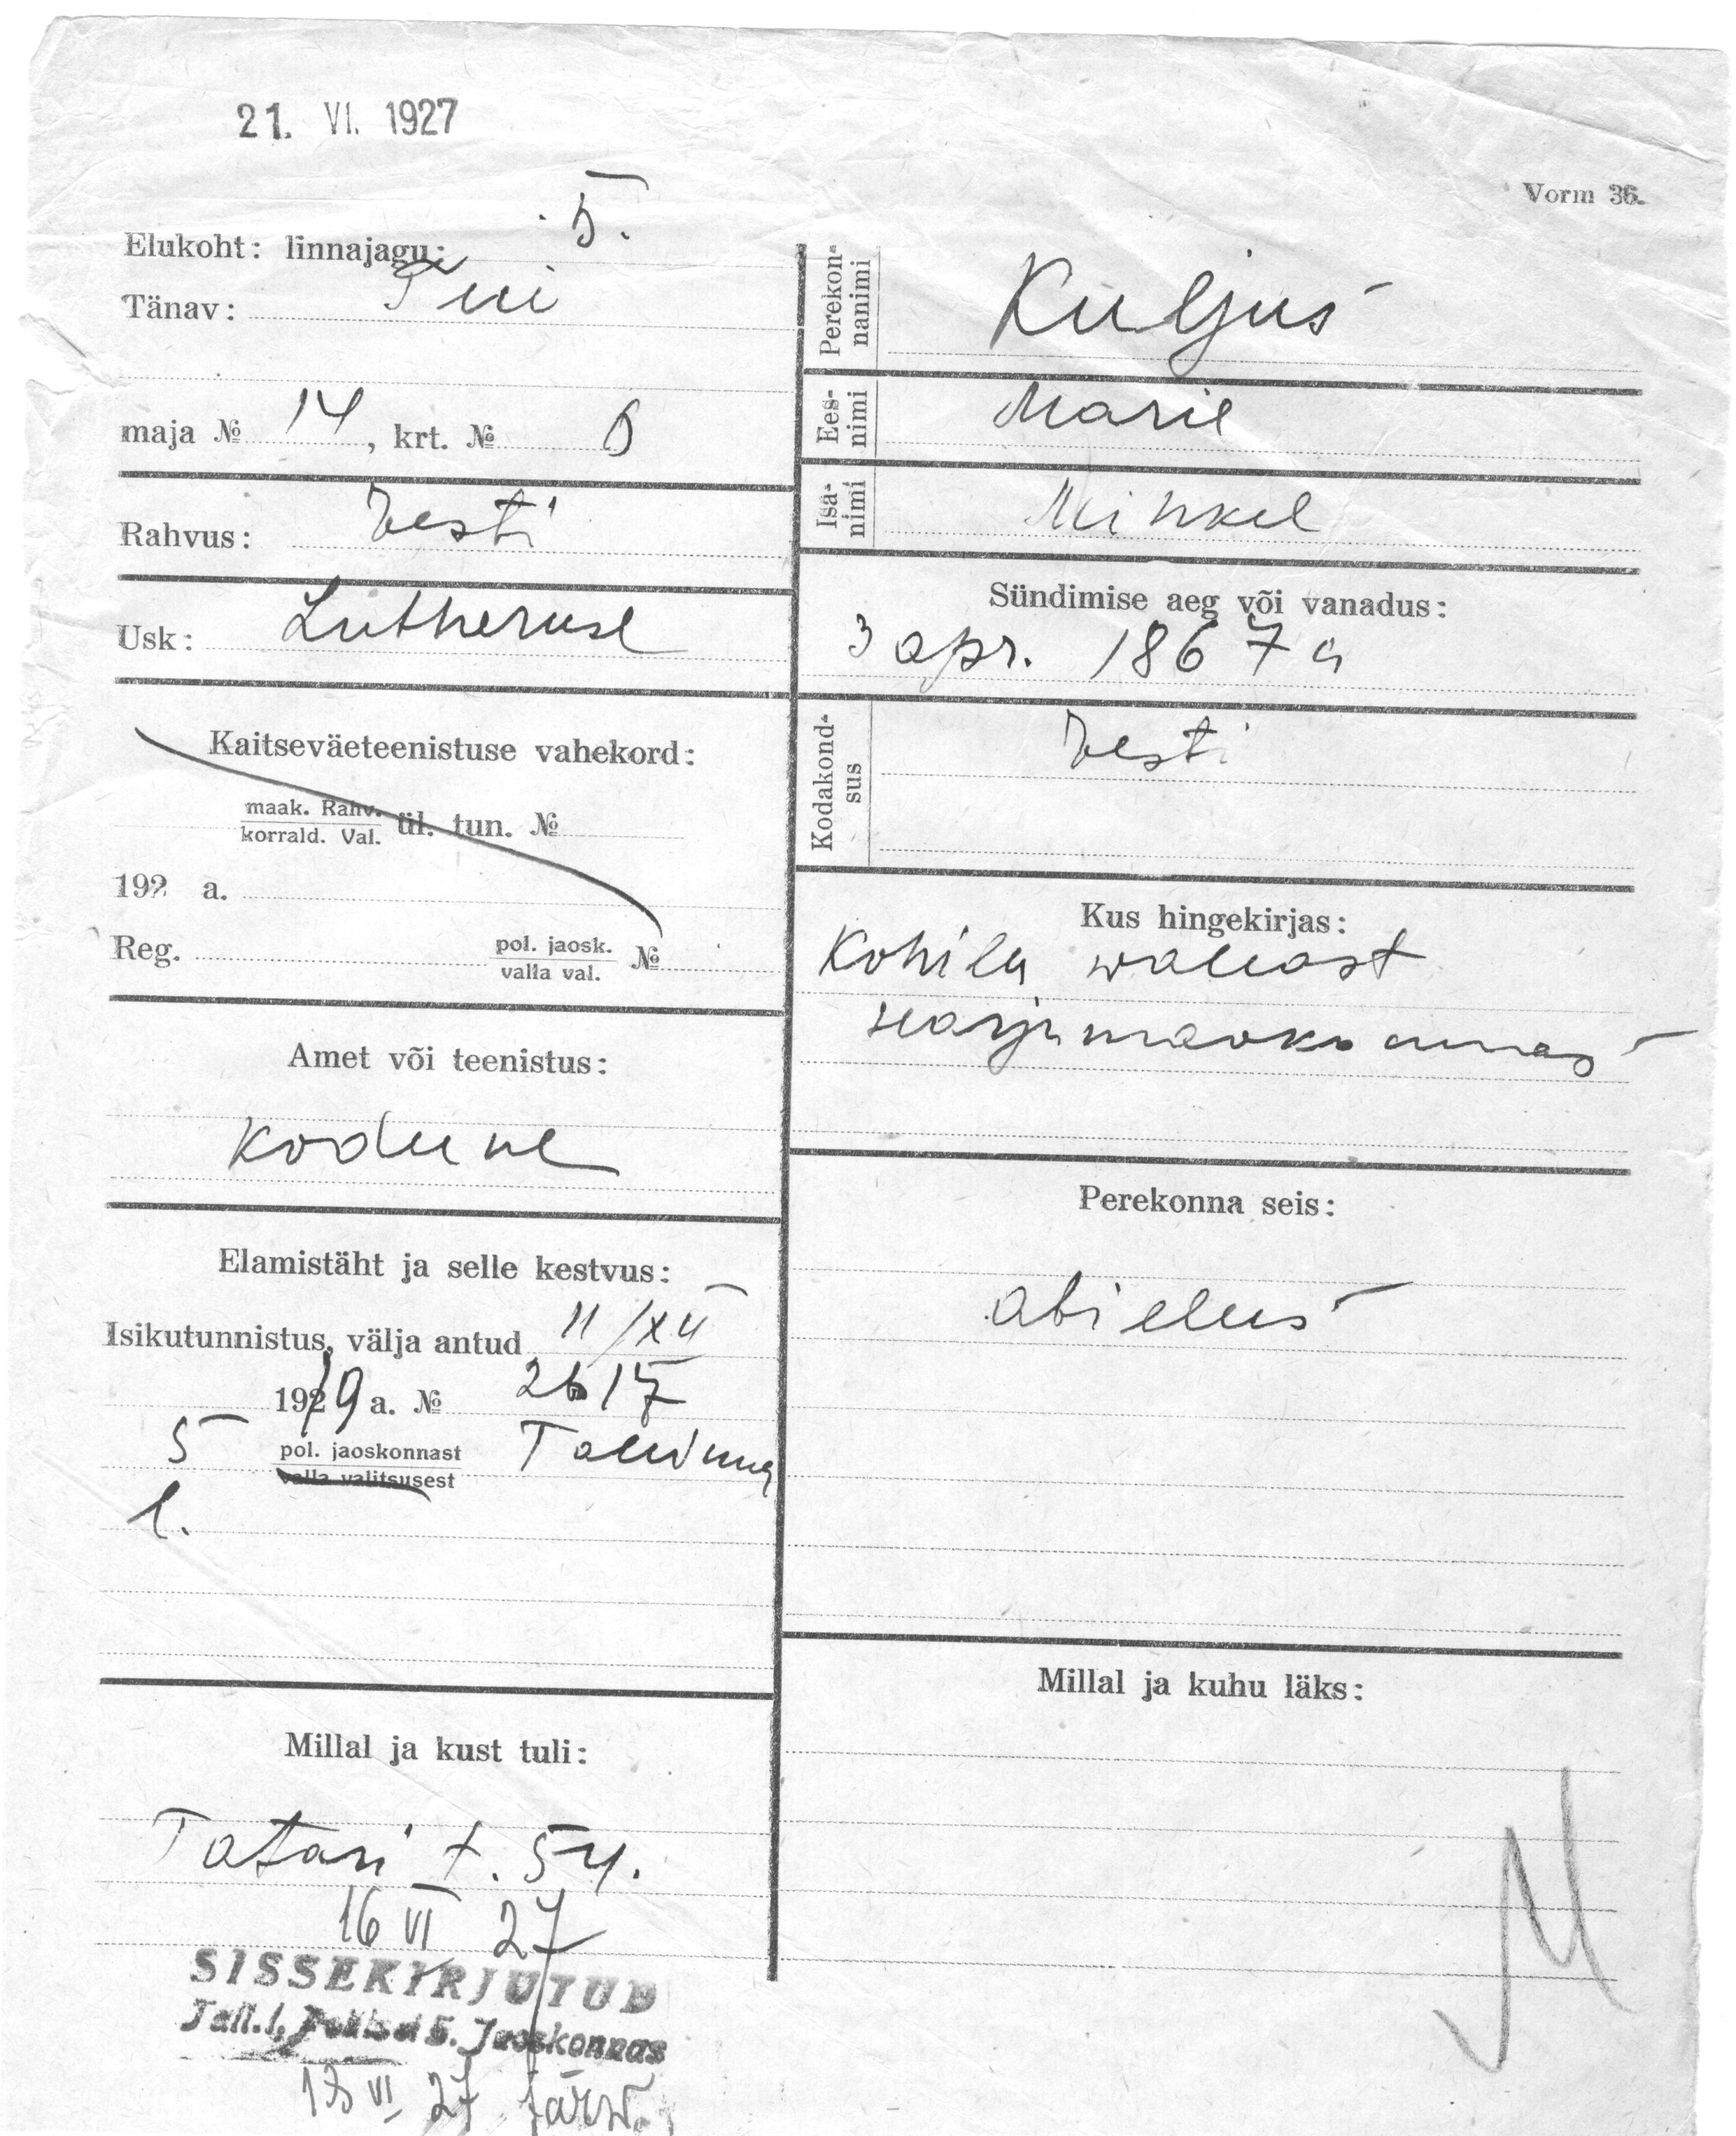 21. VI. 1927
Vorm 36.
Elukoht: linnajagu: 5.
Tänav: Pui
maja № 14, krt. № 6
Rahvus: Eesti
Usk: Lutheruse
Kaitseväeteenistuse vahekord:
maak. Rahv.
korrald. Val. ül. tun. №
192 a.
Reg. pol. jaosk.
valla val. №
Amet või teenistus:
kodune
Elamistäht ja selle kestvus:
Isikutunnistus, välja antud 11/XII
1919 a. № 2617
5 pol. jaoskonnast Tallinna
valla valitsusest
l.
Millal ja kust tuli:
Tatari t. 54.
16 VI 27
SISSEKIRJUTUD
Tall. l. Politsei 5. Jaoskonnas
VI 27
Perekonnanimi
Kuljus
Eesnimi
Marie
Isanimi
Mihkel
Sündimise aeg või vanadus:
3 apr. 1867 a
Kodakondsus
Eesti
Kus hingekirjas:
Kohila wallast
Harjumaakonnas
Perekonna seis:
abielus
Millal ja kuhu läks: